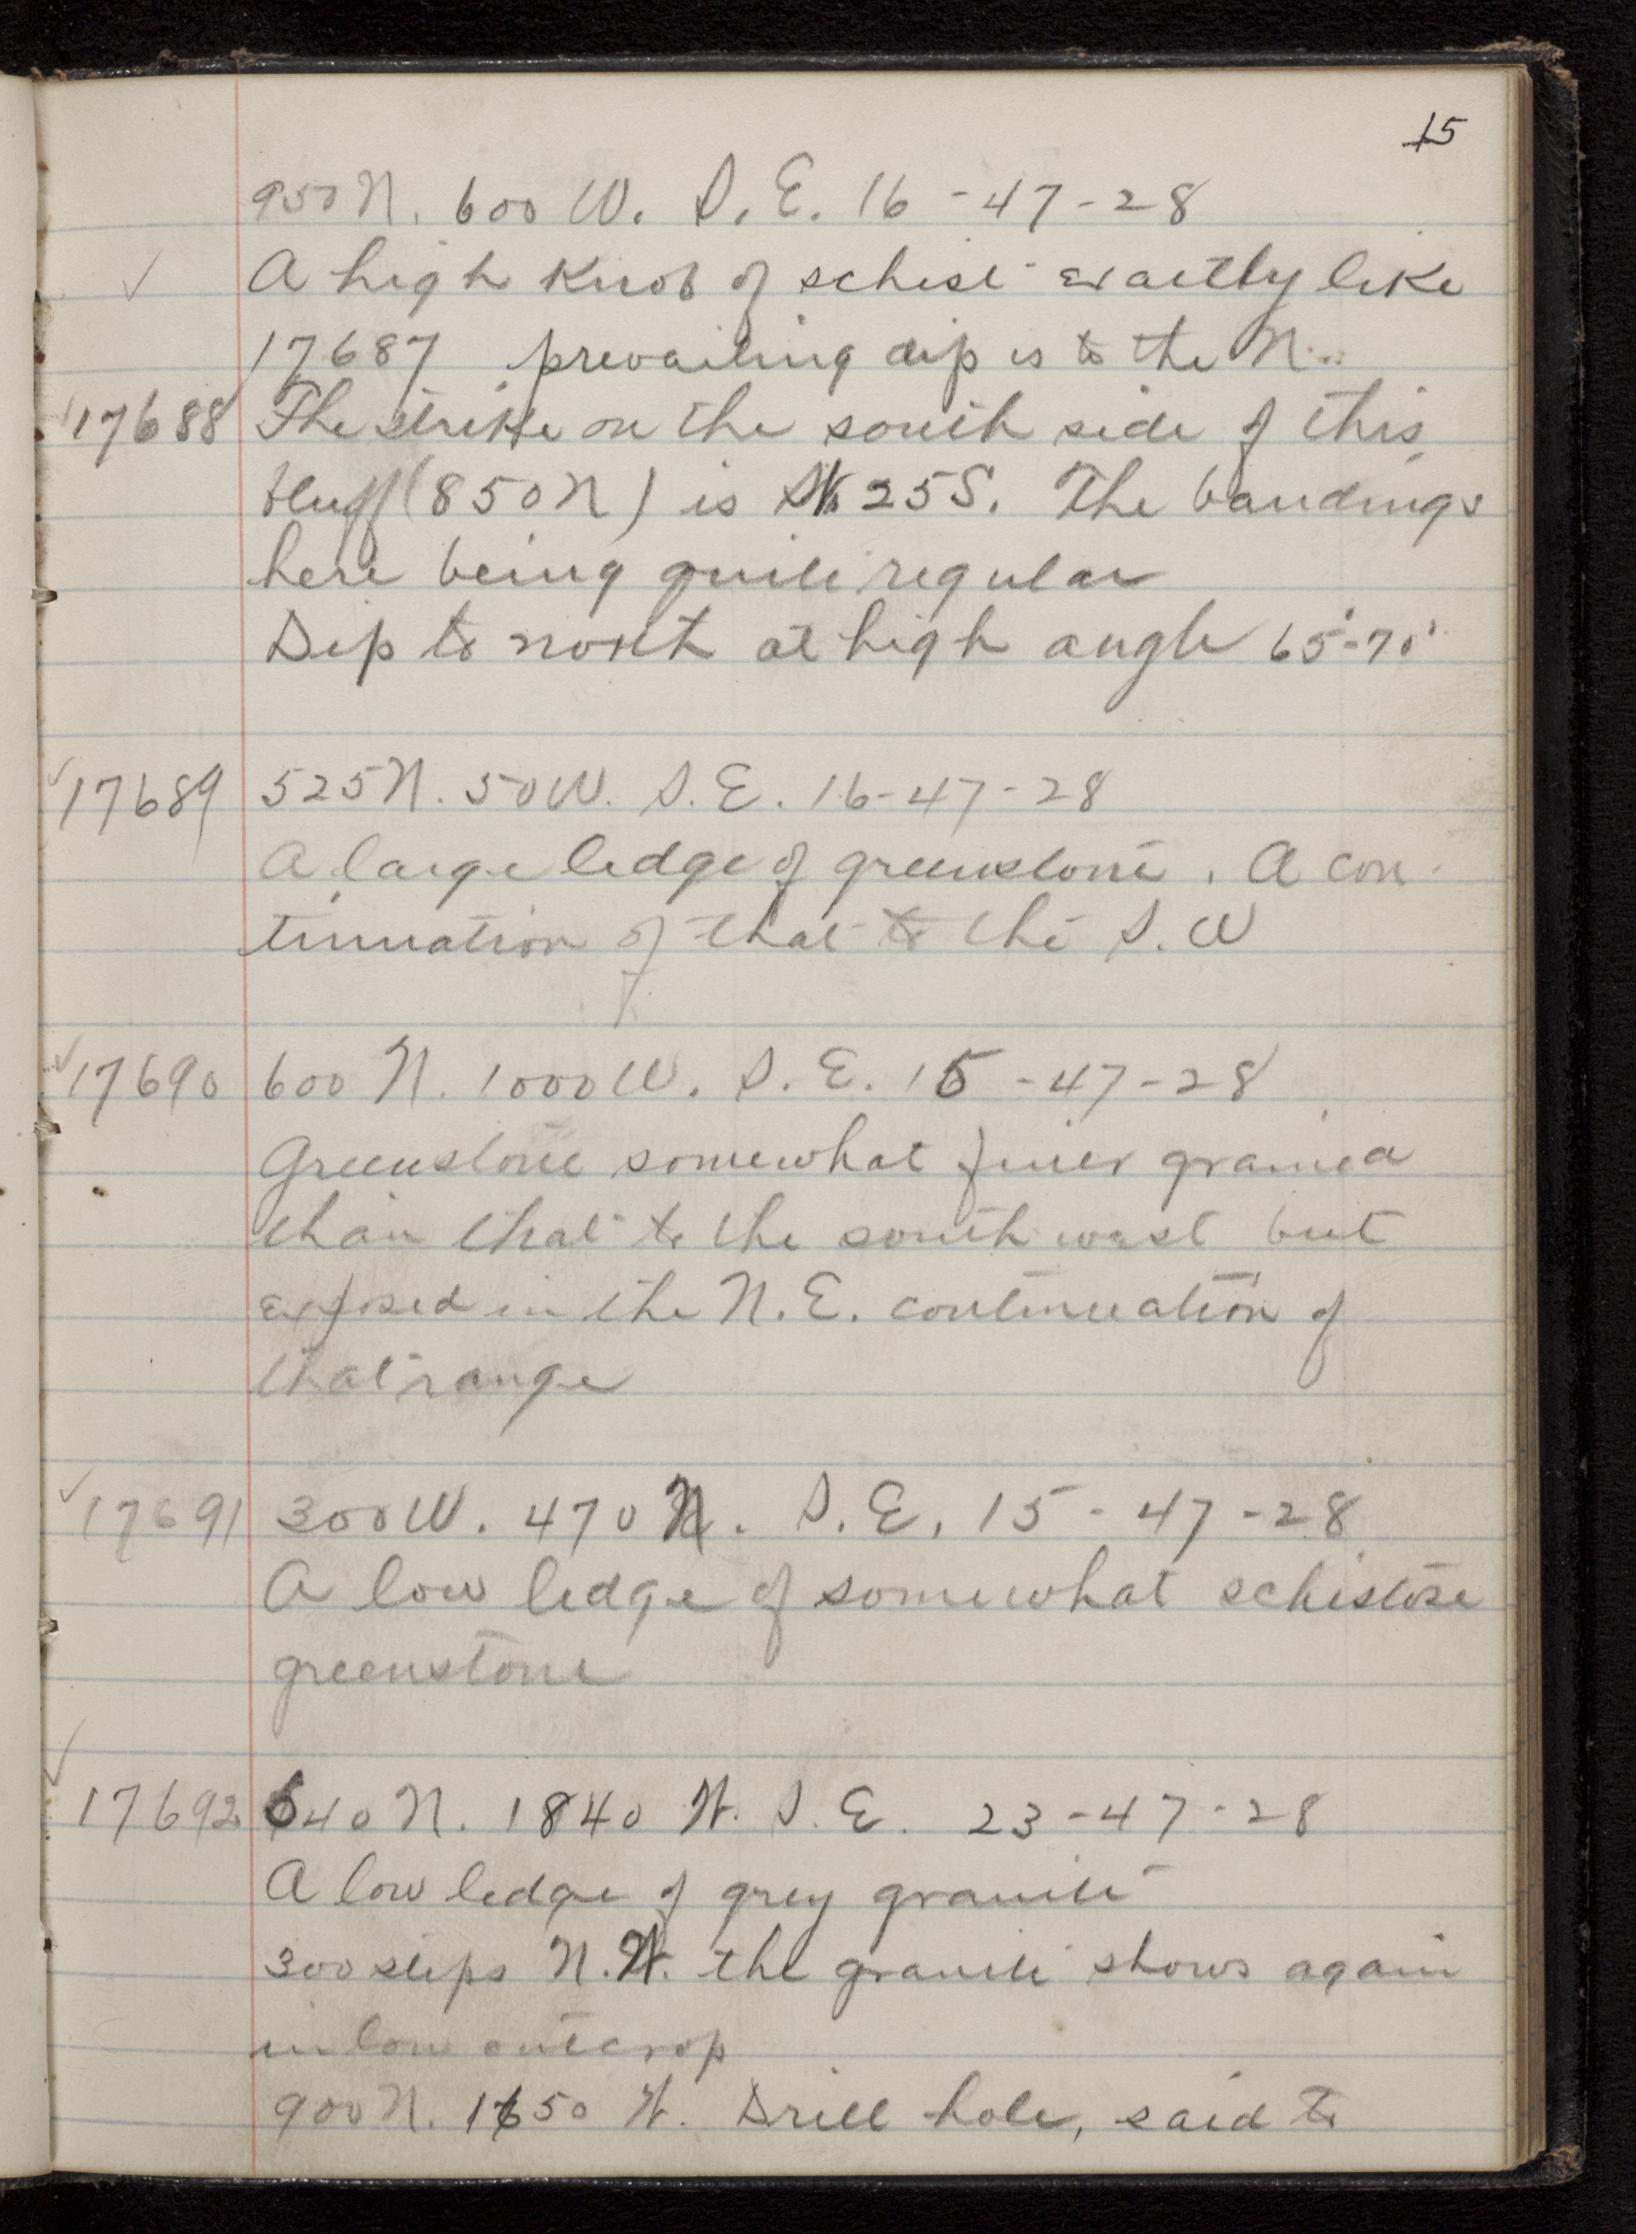 15
950 N. 600 W. S. E. 16-47-28
✓ A high knob of schist exactly like
17687 prevailing dip is to the N.
✓17688 The strike on the south side of this
bluff (850 N) is 25 S. The bandings
here being quite regular
Dip to north at high angle 65°-70°
✓17689 525 N. 50 W. S. E. 16-47-28
A large ledge of greenstone. A con-
tinuation of that to the S. W
✓17690 600 N. 1000 W. S. E. 15-47-28
Greenstone somewhat finer grained
than that to the south west but
exposed in the N. E. continuation of
that range
✓17691 300 W. 470 N. S. E. 15-47-28
A low ledge of somewhat schistose
greenstone
✓
17692 640 N. 1840 W. S. E. 23-47-28
A low ledge of grey granite
300 steps N. W. the granite shows again
in low outcrop
900 N. 1650 W. Drill hole, said to